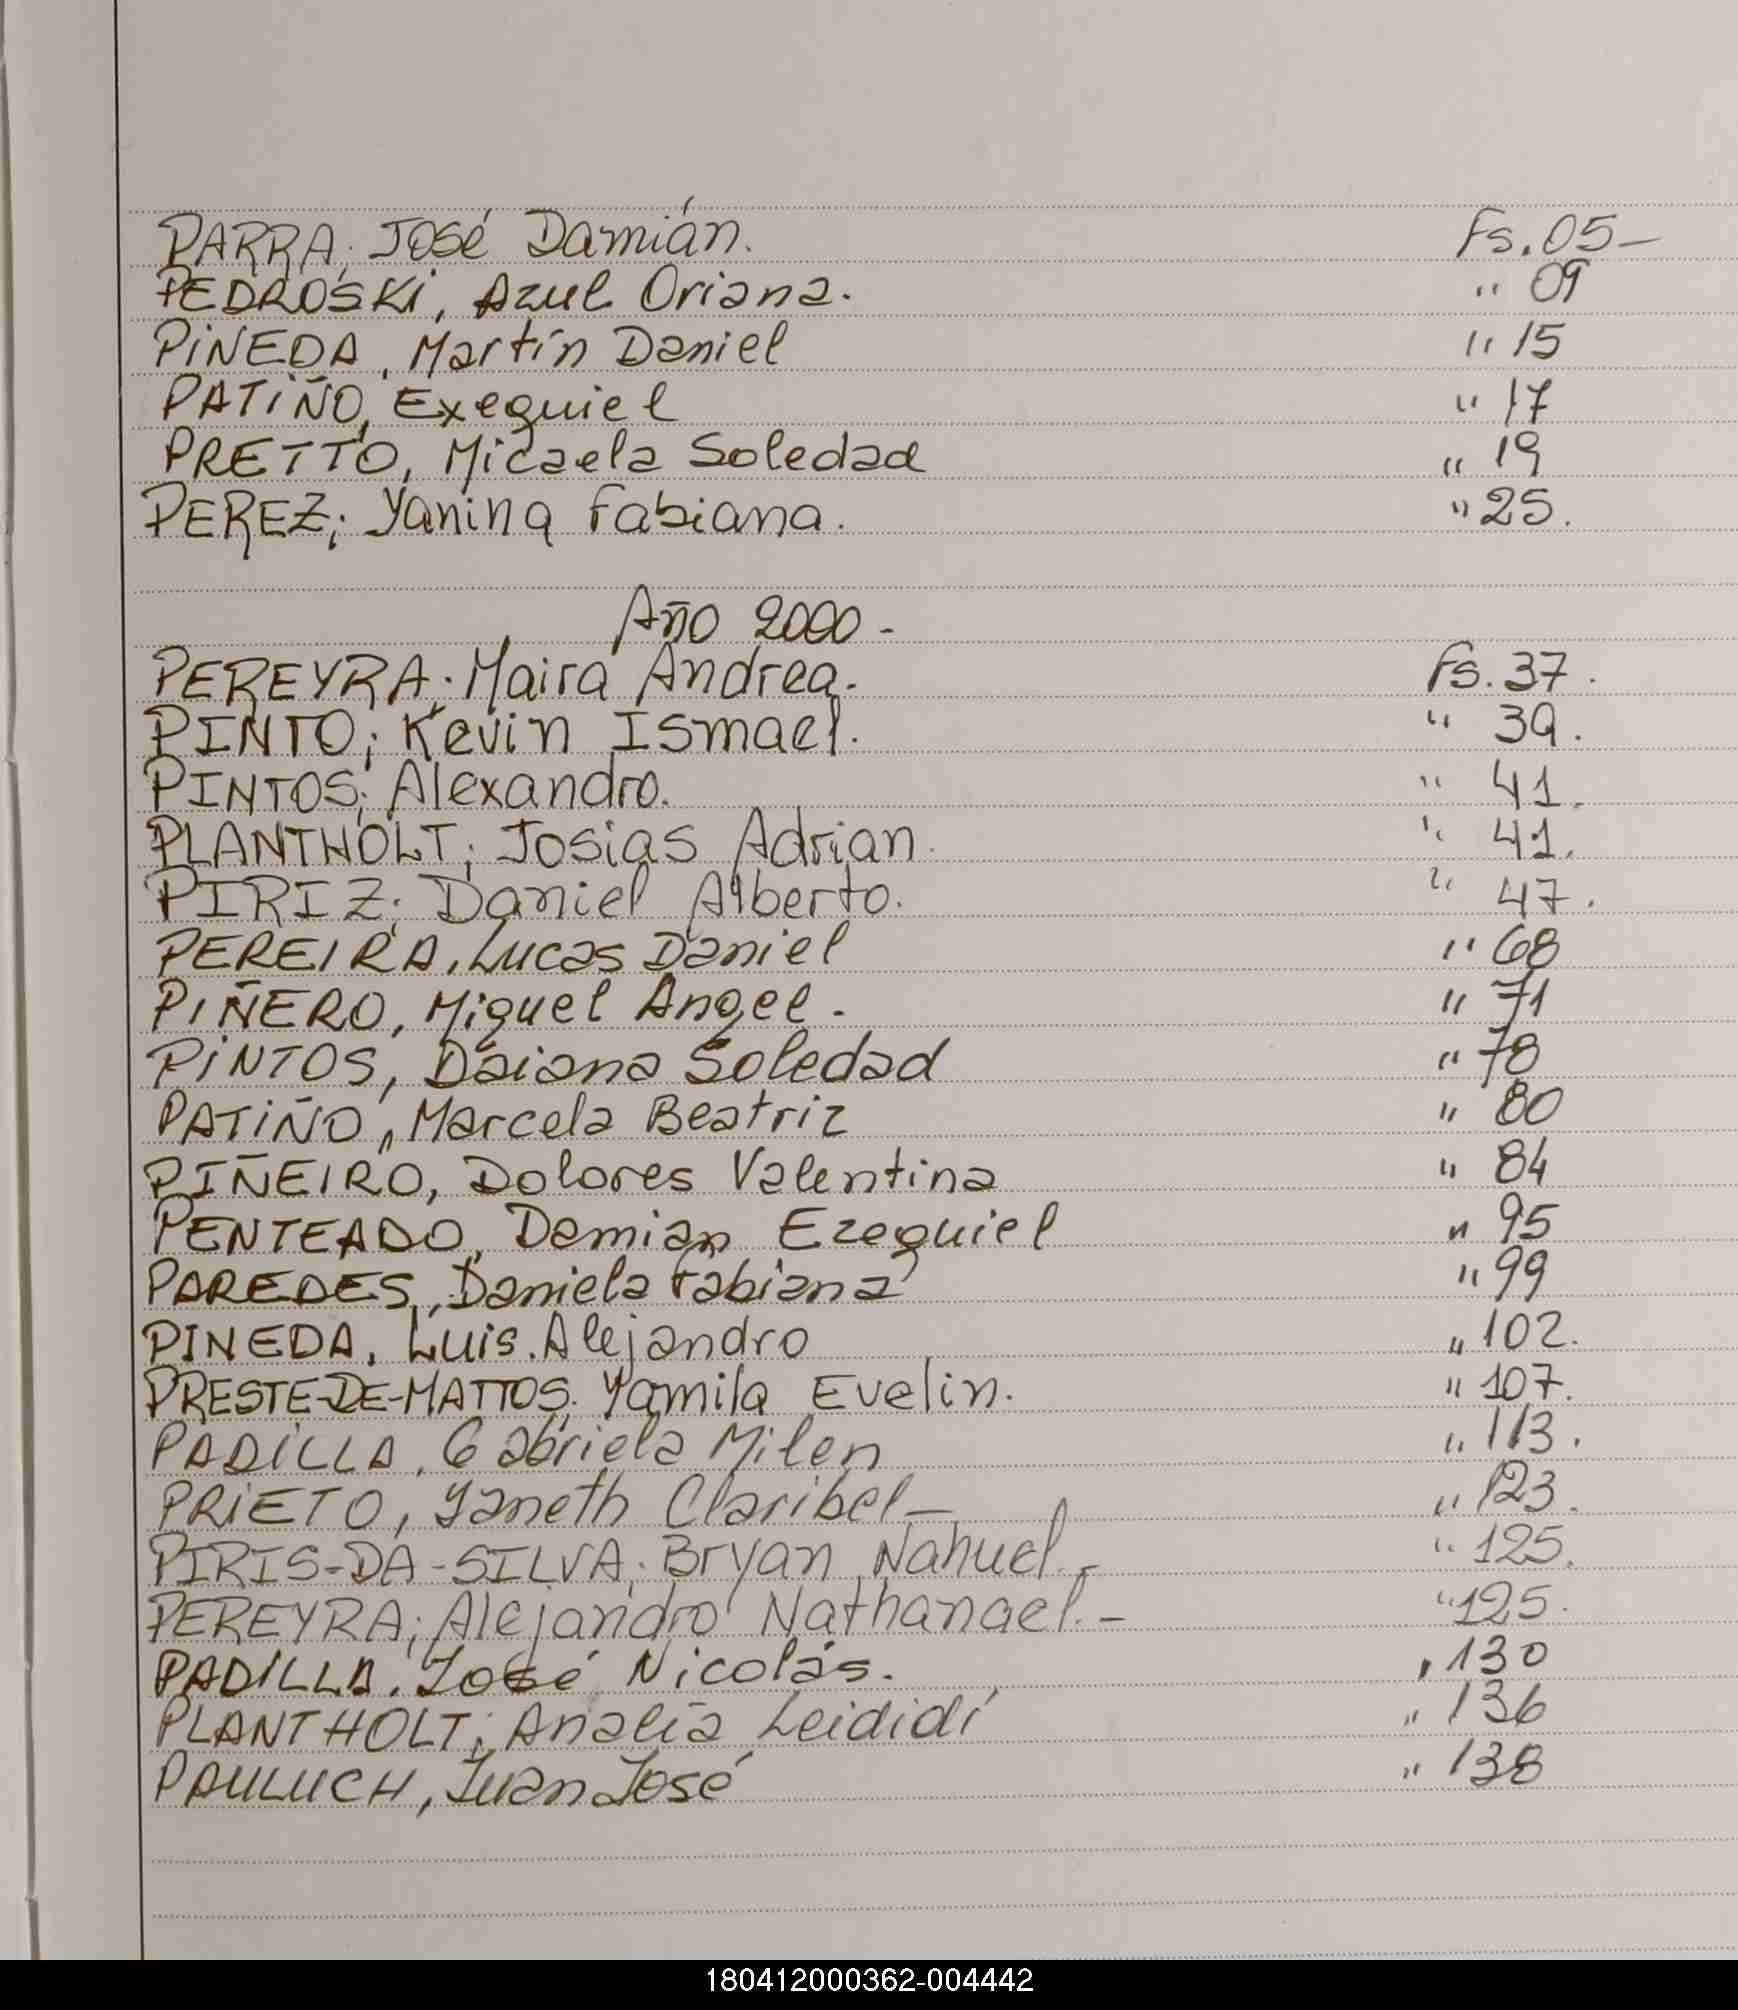 PARRA; José Damián. Fs. 05-
PEDROSKI, Azul Oriana. " 09
PiNEDA, Martín Daniel " 15
PATiÑO, Exequiel " 17
PRETTO, Micaela Soledad " 19
PEREZ; Yanina Fabiana. " 25.
Año 2000-
PEREYRA; Maira Andrea. Fs. 37.
PINTO; Kevin Ismael. " 39.
PINTOS; Alexandro. " 41.
PLANTHOLT; Josias Adrian. " 41.
PIRIZ; Daniel Alberto. " 47.
PEREIRA, Lucas Daniel " 68
PIÑERO, Miguel Angel. " 71
PiNTOS, Daiana Soledad " 78
PATiÑO, Marcela Beatriz " 80
PIÑEIRO, Dolores Valentina " 84
PENTEADO, Damian Ezequiel " 95
PAREDES, Daniela Fabiana " 99
PINEDA, Luis Alejandro " 102.
PRESTE-DE-MATTOS; Yamila Evelin. " 107.
PADiLLA, Gabriela Milen " 113.
PRiETO, Yaneth Claribel- " 123.
PIRIS-DA-SILVA; Bryan Nahuel.- " 125.
PEREYRA; Alejandro Nathanael.- " 125.
PADiLLA, José Nicolás. " 130
PLANTHOLT; Analía Leididí " 136
PAULUCH, Juan José " 138
180412000362-004442